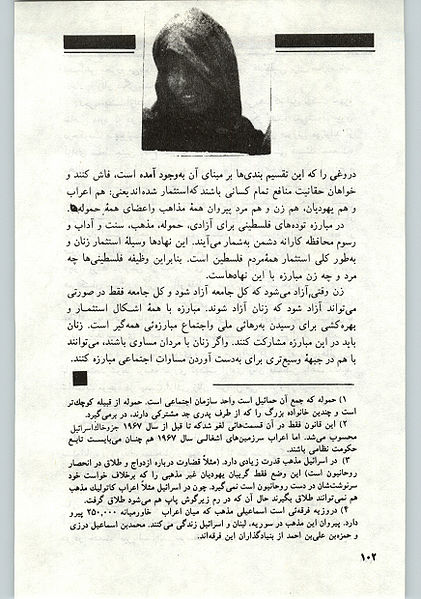 دروغی را که این تقسیم بندی‌ها بر مبنای آن به‌وجود آمده است، فاش کنند و
خواهان حقانیت منافع تمام کسانی باشند که‌استثمار شده‌اند یعنی: هم اعراب
و هم یهودیان، هم زن و هم مرد پیروان همهٔ مذاهب واعضای همهٔ حموله‌ها.
در مبارزه توده‌های فلسطینی برای آزادی، حموله، مذهب، سنت و آداب و
رسوم محافظه کارانه دشمن به‌شمار می‌آیند. این نهادها وسیلهٔ استثمار زنان و
به‌طور کلی استثمار همهٔ‌مردم فلسطین است. بنابراین وظیفه فلسطینی‌ها چه
مرد و چه زن مبارزه با این نهادهاست.
زن وقتی‌آزاد می‌شود که کل جامعه آزاد شود و کل جامعه فقط در صورتی
می‌تواند آزاد شود که زنان آزاد شوند. مبارزه با همهٔ اشکال استثمار و
بهره‌کشی برای رسیدن به‌رهائی ملی واجتماع مبارزه‌ئی همه‌گیر است. زنان
باید در این مبارزه مشارکت کنند. واگر زنان با مردان مساوی باشند، می‌توانند
با هم در جبههٔ وسیع‌تری برای به‌دست آوردن مساوات اجتماعی مبارزه کنند.
۱) حموله که جمع آن حمائیل است واحد سازمان اجتماعی است. حموله از قبیله کوچک‌تر
است و چندین خانواده بزرگ را که از طرف پدری جد مشترکی دارند، در برمی‌گیرد.
۲) این قانون فقط در آن قسمت‌هائی لغو شدکه تا قبل از سال ۱۹۶۷ جزوخاک‌اسرائیل
محسوب می‌شد. اما اعراب سرزمین‌های اشغالی سال ۱۹۶۷ هم چنان می‌بایست تابع
حکومت نظامی باشند.
۳) در اسرائیل مذهب قدرت زیادی دارد. (مثلاً قضاوت درباره ازدواج و طلاق در انحصار
روحانیون است) این وضع فقط گریبان یهودیان غیر مذهبی را که برخلاف خواست خود
سرنوشت‌شان در دست روحانیون است نمی‌گیرد. چون در اسرائیل مثلاً اعراب کاتولیک مذهب
هم نمی‌توانند طلاق بگیرند حال آن که در رم زیرگوش پاپ هم می‌شود طلاق گرفت.
۴) دروزیه فرقه‌ئی است اسماعیلی مذهب که میان اعراب خاورمیانه ۲۵۰،۰۰۰ پیرو
دارد. پیروان این مذهب در سوریه، لبنان و اسرائیل زندگی می‌کنند. محمدبن اسماعیل درزی
و حمزه‌بن علی‌بن احمد از بنیادگذاران این فرقه‌اند.
۱۰۲